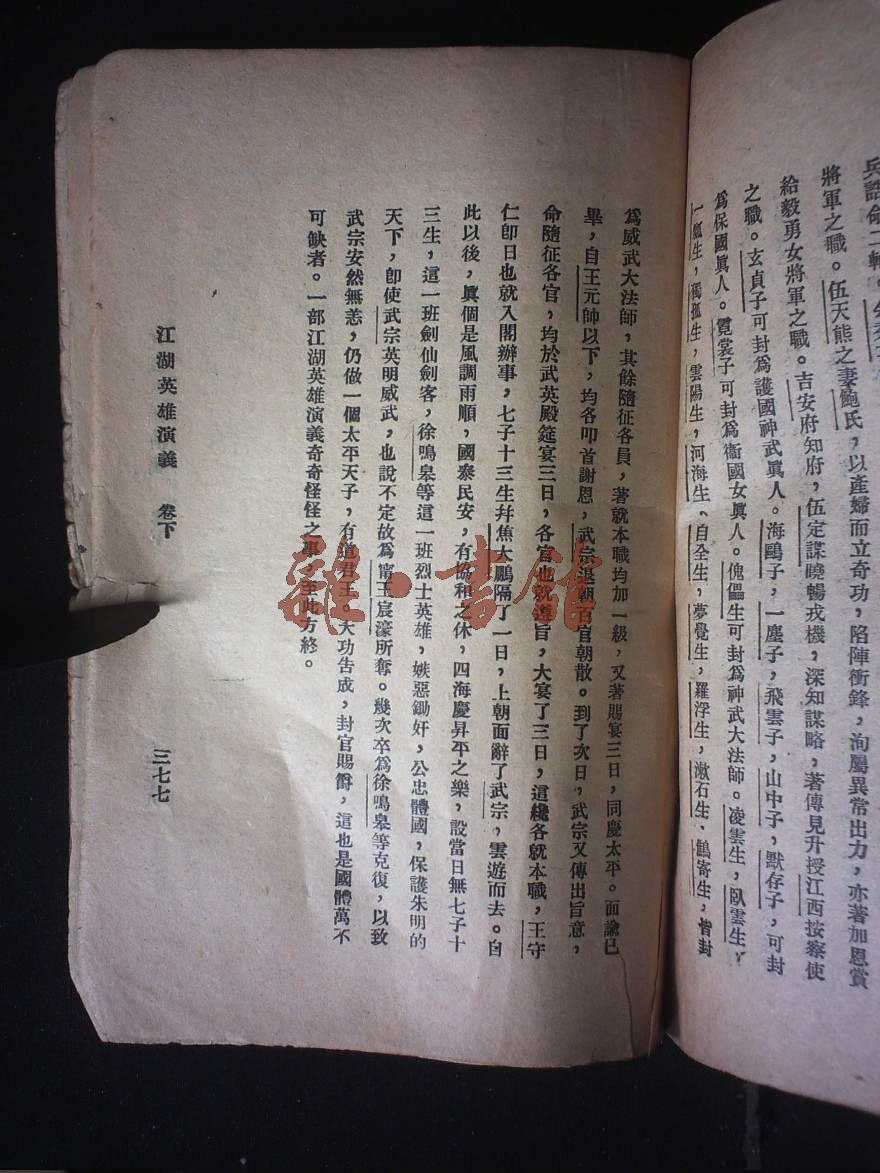 兵誥命二軸。
將軍之職。伍天熊之妻鮑氏，以產婦而立奇功，陷陣衝鋒，洵屬異常出力，亦著加恩賞
給毅勇女將軍之職。吉安府知府，伍定謀曉暢戎機，深知謀略，著傳見升授江西按察使
之職。玄貞子可封爲護國神武眞人。海鷗子，一塵子，飛雲子，山中子，默存子，可封
爲保國眞人。霓裳子可封爲衞國女眞人。傀儡生可封爲神武大法師。凌雲生，臥雲生，
一瓢生，獨孤生，雲陽生，河海生，自全生，夢覺生，羅浮生，漱石生，鷦寄生，皆封
爲威武大法師，其餘隨征各員，著就本職均加一級，又著賜宴三日，同慶太平。面諭已
畢，自王元帥以下，均各叩首謝恩，武宗退朝百官朝散。到了次日，武宗又傳出旨意，
命隨征各官，均於武英殿筵宴三日，各官也就遵旨，大宴了三日，這纔各就本職，王守
仁卽日也就入閣辦事，七子十三生幷焦大鵬隔了一日，上朝面辭了武宗，雲遊而去。自
此以後，眞個是風調雨順，國泰民安，有協和之休，四海慶昇平之樂，設當日無七子十
三生，這一班劍仙劍客，徐鳴皋等這一班烈士英雄，嫉惡鋤奸，公忠體國，保護朱明的
天下，卽使武宗英明威武，也說不定故爲甯王宸濠所奪。幾次卒爲徐鳴皋等克復，以致
武宗安然無恙，仍做一個太平天子，有道君王，大功告成，封官賜爵，這也是國體萬不
可缺者。一部江湖英雄演義奇奇怪怪之事，至此方終。
江湖英雄演義 卷下
三七七
雜·書館